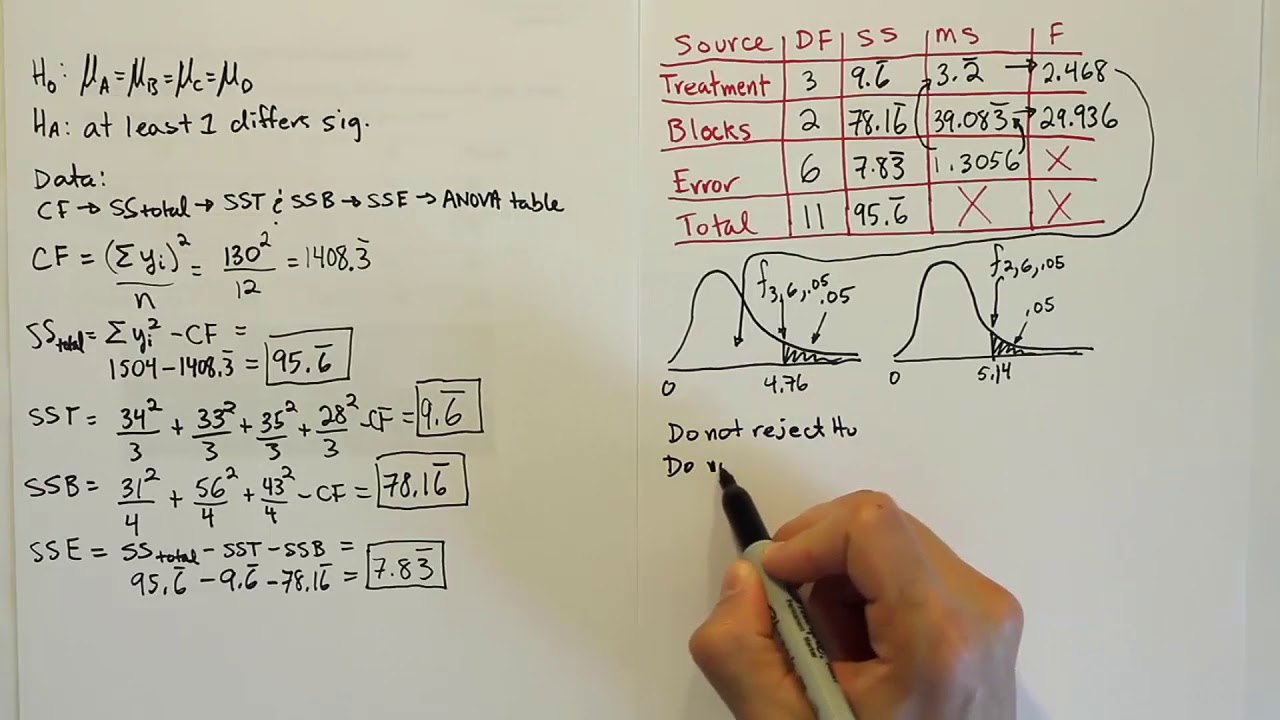 H₀: μ_A = μ_B = μ_C = μ_D
H_A: at least 1 differs sig.
Data:
CF → SStotal → SST & SSB → SSE → ANOVA table
CF = (Σyᵢ)²/n = 130²/12 = 1408.3̅
SS_total = Σyᵢ² - CF =
1504 - 1408.3̅ = 95.6̅
SST = 34²/3 + 33²/3 + 35²/3 + 28²/3 - CF = 9.6̅
SSB = 31²/4 + 56²/4 + 43²/4 - CF = 78.16̅
SSE = SS_total - SST - SSB =
95.6̅ - 9.6̅ - 78.16̅ = 7.83̅
Source DF SS MS F
Treatment 3 9.6̅ 3.2̅ → 2.468
Blocks 2 78.16̅ 39.083̅ → 29.936
Error 6 7.83̅ 1.3056 X
Total 11 95.6̅ X X
f₃,₆,.₀₅
.05
0 4.76
f₂,₆,.₀₅
.05
0 5.14
Do not reject H₀
Do